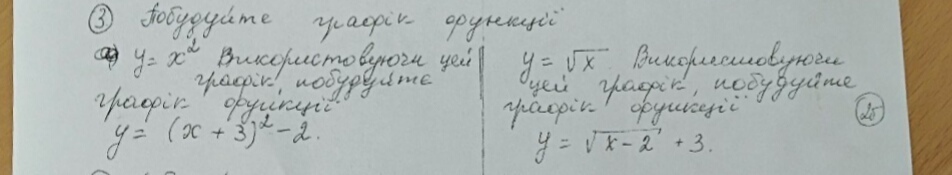 ③ Побудуйте графік функції
а) y = x² Використовуючи цей
графік, побудуйте
графік функції
y = (x + 3)² - 2.
y = √x. Використовуючи
цей графік, побудуйте
графік функції
y = √(x - 2) + 3.
2б